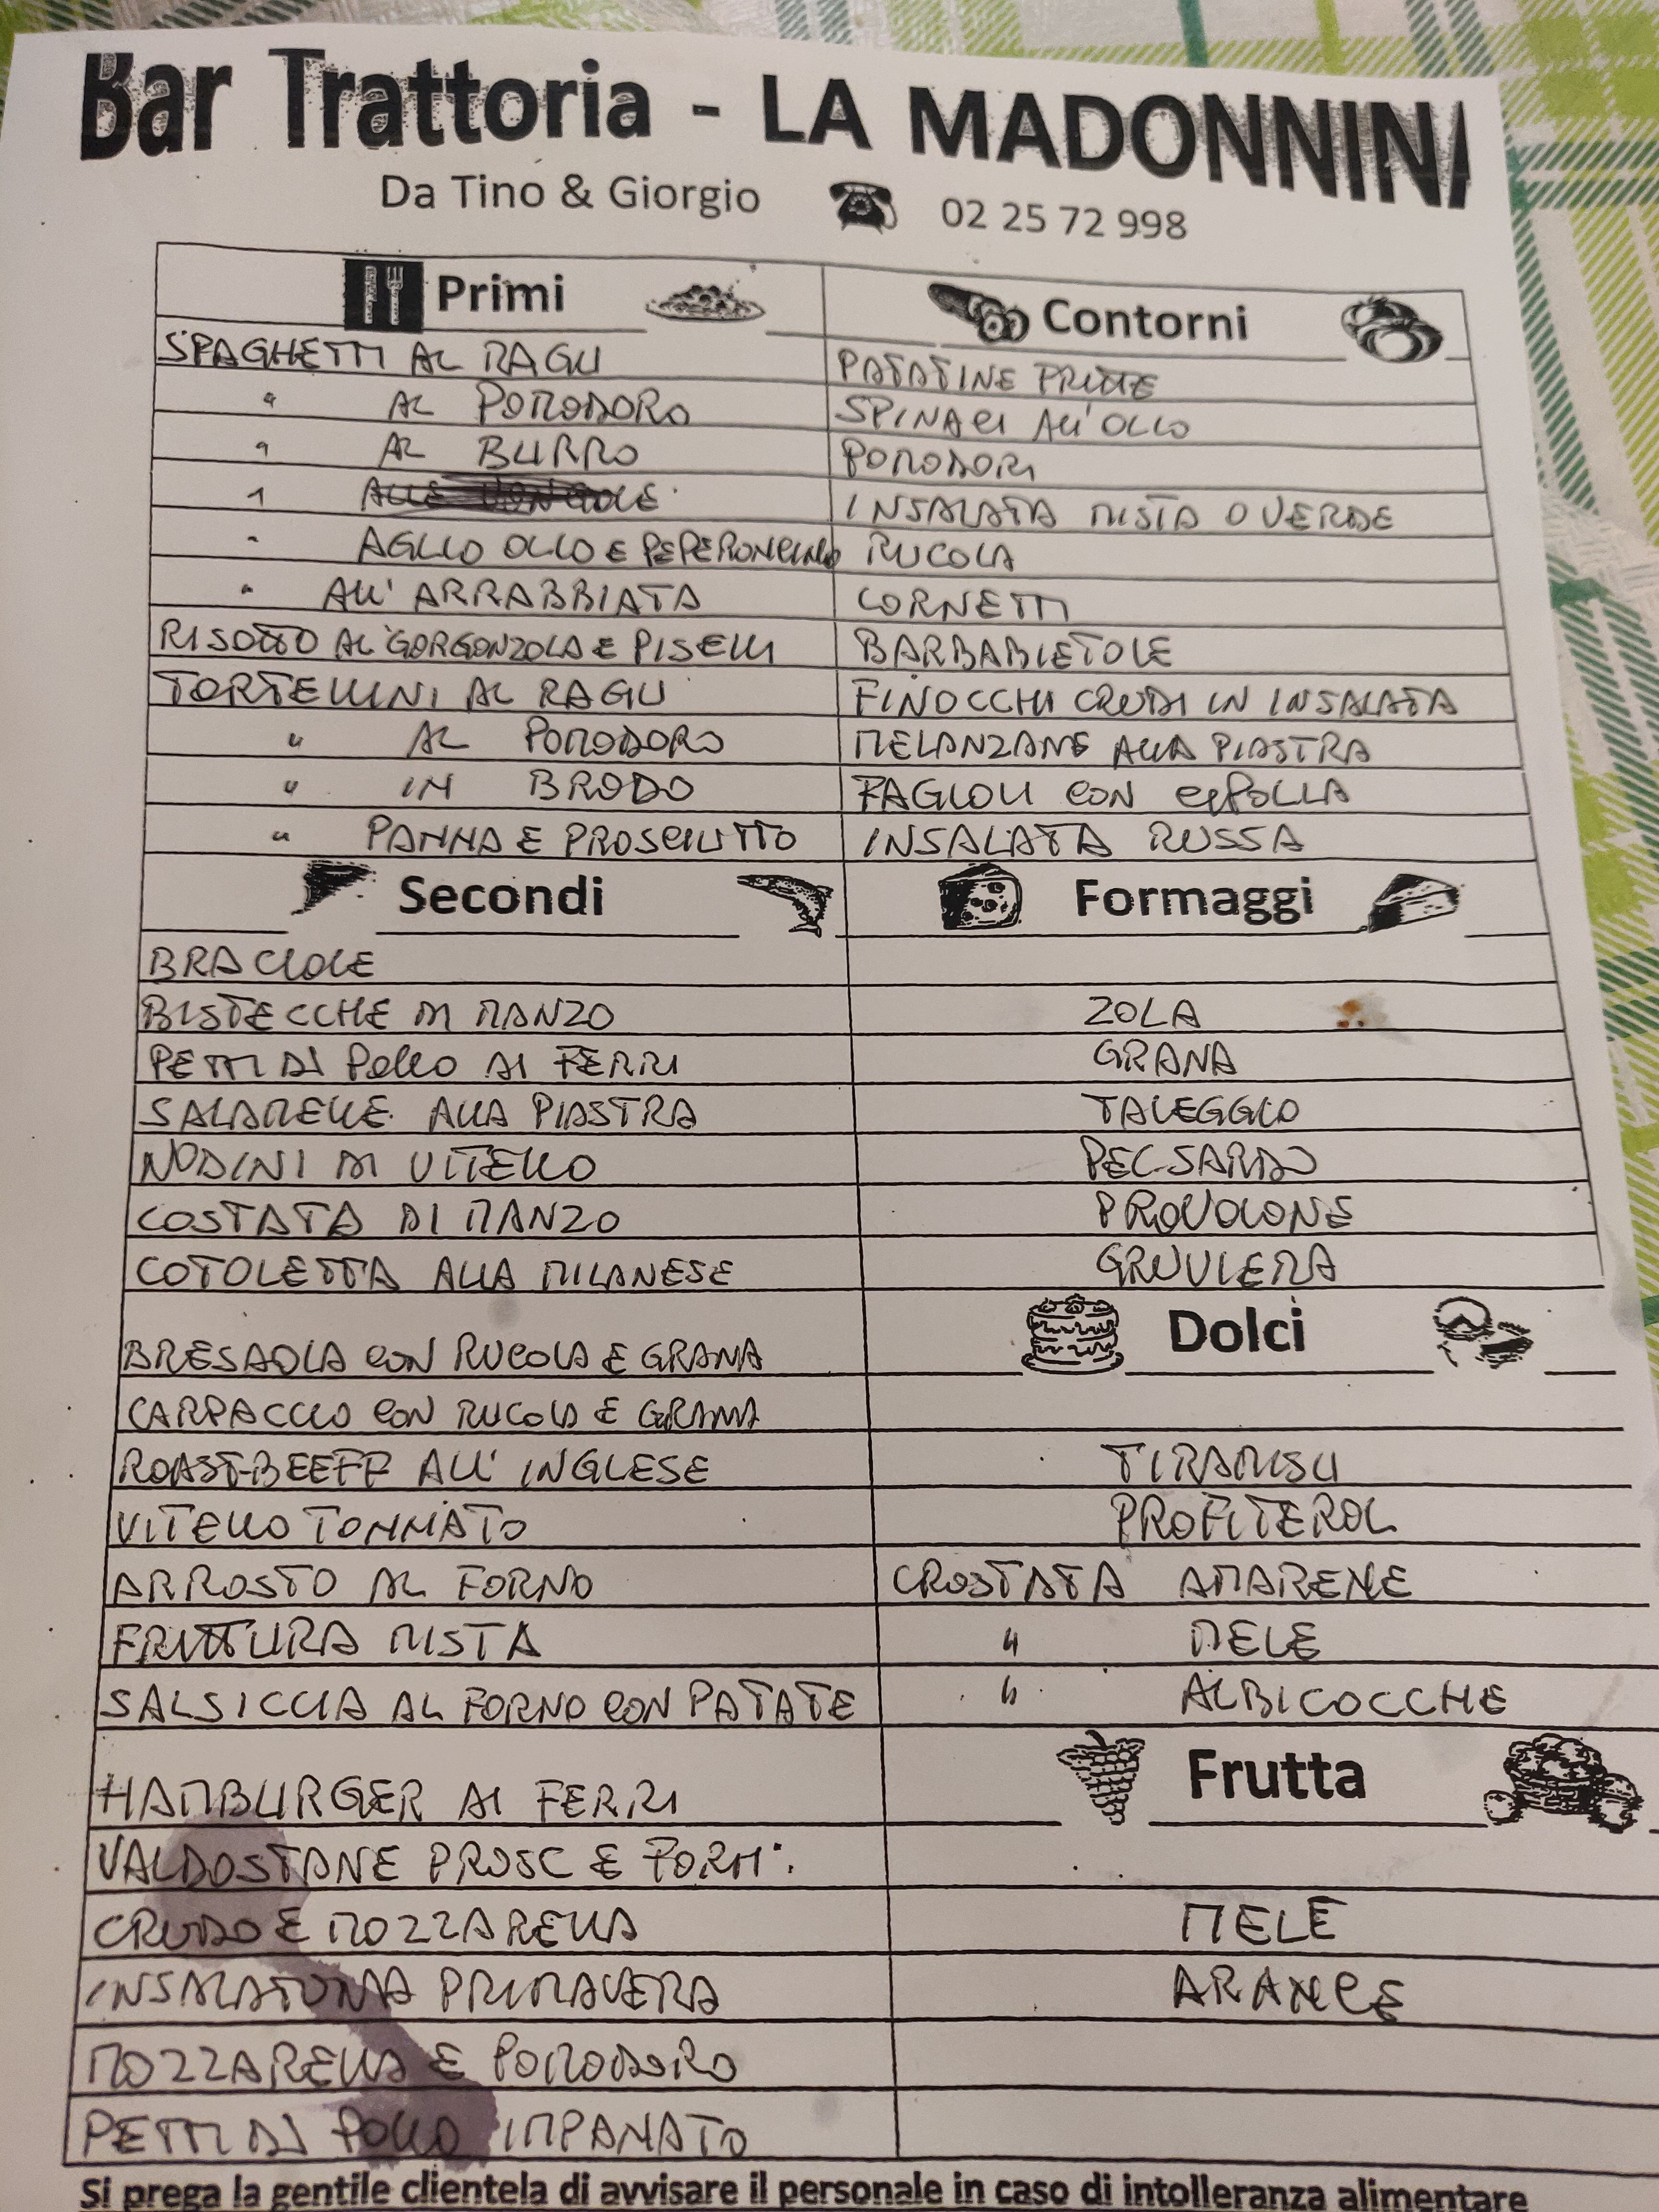 Bar Trattoria - LA MADONNINA
Da Tino & Giorgio 02 25 72 998
Primi
SPAGHETTI AL RAGU
" AL POMODORO
" AL BURRO
" ALLE VONGOLE
" AGLIO OLIO E PEPERONCINO
" ALL' ARRABBIATA
RISOTTO AL GORGONZOLA E PISELLI
TORTELLINI AL RAGU
" AL POMODORO
" IN BRODO
" PANNA E PROSCIUTTO
Contorni
PATATINE FRITTE
SPINACI ALL'OLIO
POMODORI
INSALATA MISTA O VERDE
RUCOLA
CORNETTI
BARBABIETOLE
FINOCCHI CRUDI IN INSALATA
MELANZANE ALLA PIASTRA
FAGIOLI CON CIPOLLA
INSALATA RUSSA
Secondi
BRACIOLE
BISTECCHE DI MANZO
PETTI DI POLLO AI FERRI
SALAMELLE ALLA PIASTRA
NODINI DI VITELLO
COSTATA DI MANZO
COTOLETTA ALLA MILANESE
BRESAOLA CON RUCOLA E GRANA
CARPACCIO CON RUCOLA E GRANA
ROAST-BEEFF ALL' INGLESE
VITELLO TONNATO
ARROSTO AL FORNO
FRITTURA MISTA
SALSICCIA AL FORNO CON PATATE
HAMBURGER AI FERRI
VALDOSTANE PROSC E FORM.
CRUDO E MOZZARELLA
INSALATONA PRIMAVERA
MOZZARELLA E POMODORO
PETTI DI POLLO IMPANATO
Formaggi
ZOLA
GRANA
TALEGGIO
PEC. SARDO
PROVOLONE
GRUVIERA
Dolci
TIRAMISU
PROFITEROL
CROSTATA AMARENE
" MELE
" ALBICOCCHE
Frutta
MELE
ARANCE
Si prega la gentile clientela di avvisare il personale in caso di intolleranza alimentare